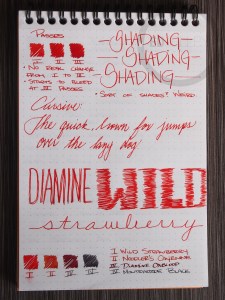 Passes
I II III
• No real change
from I to III
• Starts to bleed
at III passes
~Shading~
~Shading~
Shading~
• Sort of shades? Weird
Cursive:
The quick brown fox jumps
over the lazy dog
DIAMINE WILD
strawberry
I Wild Strawberry
II Noodler's
III Diamine Oxblood
IV Montverde Black
I II III IV